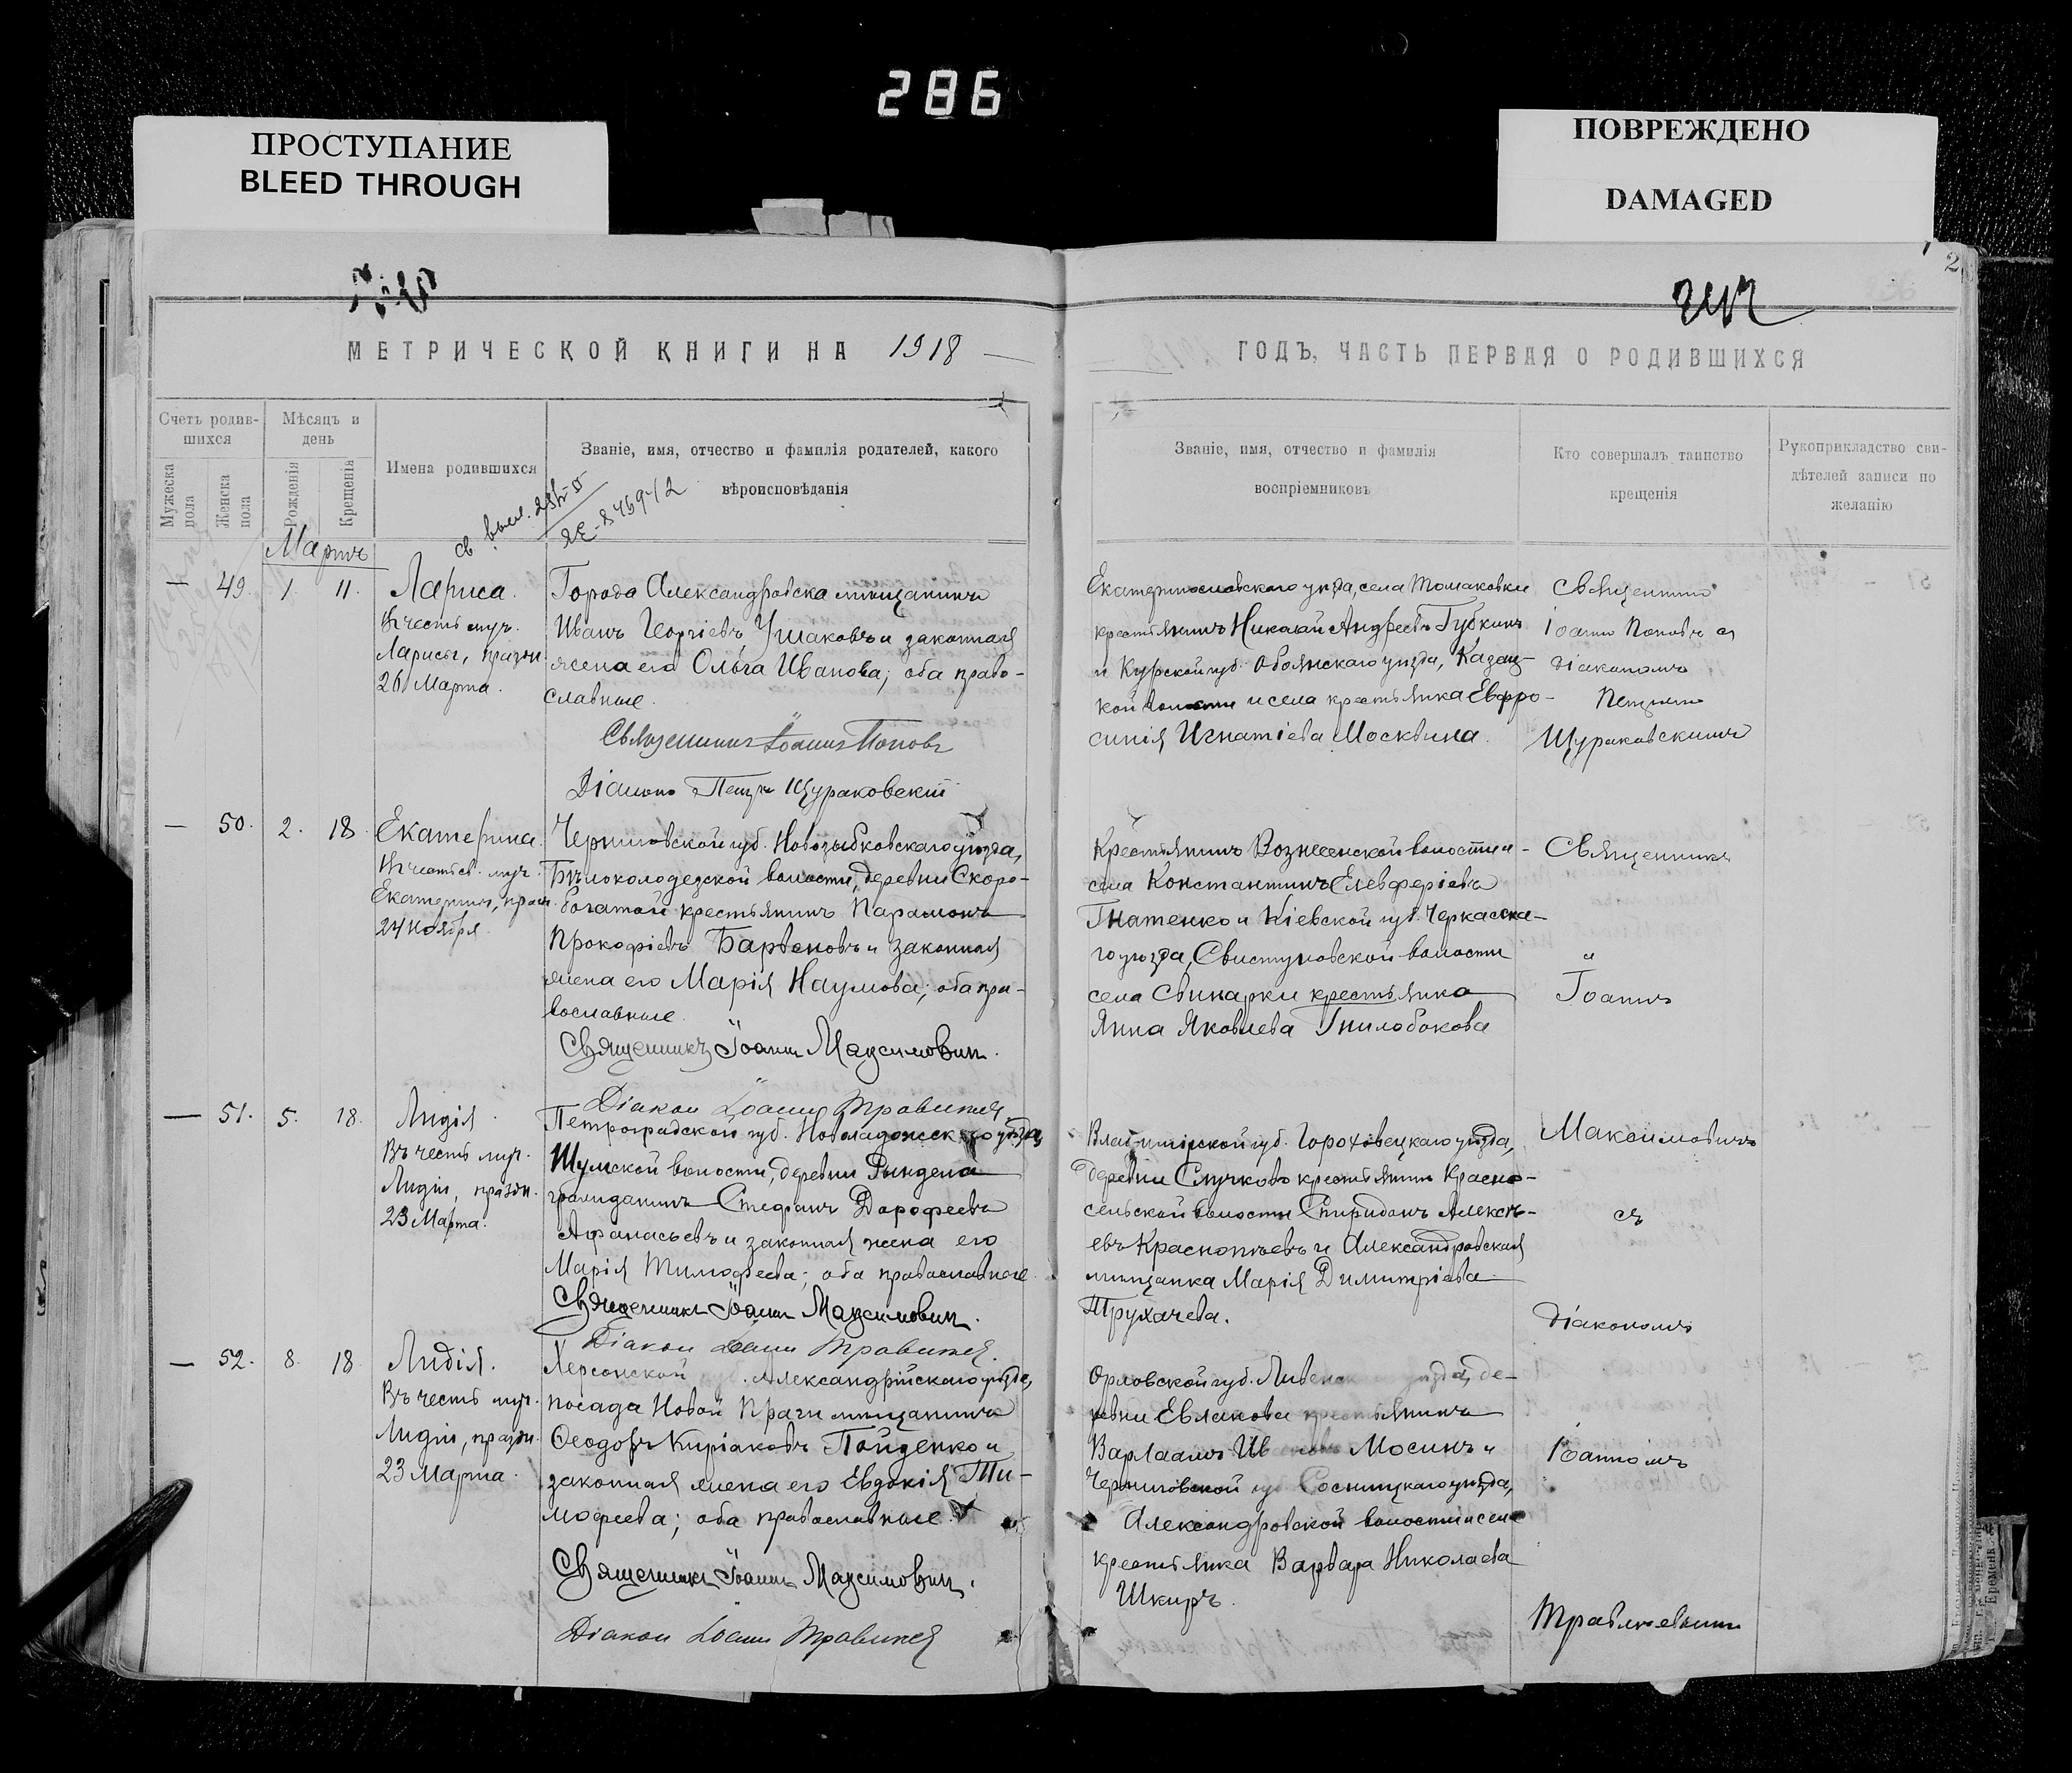 286
ПРОСТУПАНИЕ
BLEED THROUGH
ПОВРЕЖДЕНО
DAMAGED
МЕТРИЧЕСКОЙ КНИГИ НА 1918
Счетъ родив-
шихся
Мѣсяцъ и
день
Имена родившихся
Званіе, имя, отчество и фамилія родителей, какого
вѣроисповѣданія
Мужеска пола
Женска пола
Рожденія
Крещенія
Мартъ
— 49. 1. 11.
Лариса.
Въ честь муч.
Ларисы, праздн.
26 Марта.
Города Александровска мѣщанинъ
Иванъ Георгіевъ Ушаковъ и законная
жена его Ольга Иванова; оба право-
славные.
Священникъ Іоаннъ Поповъ
Діаконъ Петръ Щураковскій
— 50. 2. 18.
Екатерина.
Въ честь св. муч.
Екатерины, празд.
24 Ноября
Черниговской губ. Новозыбковскаго уѣзда,
Бѣлоколодезской волости, деревни Скоро-
богатой крестьянинъ Парамонъ
Прокофіевъ Барсеновъ и законная
жена его Марія Наумова; оба пра-
вославные.
Священникъ Іоаннъ Максимовичъ.
Діакон Іоанн
— 51. 5. 18.
Лидія.
Въ честь муч.
Лидіи, праздн.
23 Марта.
Петроградской губ. Новоладожскаго уѣзда,
Шумской волости, деревни Рындела
гражданинъ Стефанъ Дорофеевъ
Афанасьевъ и законная жена его
Марія Тимофеева; оба православные.
Священникъ Іоаннъ Максимович.
Діакон Іоанн
— 52. 8. 18.
Лидія.
Въ честь муч.
Лидіи, праздн.
23 Марта.
Херсонской губ. Александрійскаго уѣзда,
посада Новой Праги мѣщанинъ
Ѳеодоръ Киріаковъ Пойденко и
законная жена его Евдокія Ти-
мофеева; оба православные.
Священникъ Іоаннъ Максимович.
Діакон Іоанн
ГОДЪ, ЧАСТЬ ПЕРВАЯ О РОДИВШИХСЯ
Званіе, имя, отчество и фамилія
воспріемниковъ
Кто совершалъ таинство
крещенія
Рукоприкладство сви-
дѣтелей записи по
желанію
Екатеринославскаго уѣзда, села Томаковки
крестьянинъ Николай Андреевъ Губкинъ
и Курской губ. Обоянскаго уѣзда, Казац-
кой волости и села крестьянка Евфро-
синія Игнатіева Москвина.
Священникъ
Іоаннъ Поповъ съ
діакономъ
Петромъ
Щураковскимъ
Крестьянинъ Вознесенской волости и
села Константинъ Елевферіевъ
Гнатенко и Кіевской губ. Черкасска-
го уѣзда, Свистуновской волости
села Свинарки крестьянка
Анна Яковлева Гнилобокова
Священникъ
Іоаннъ
Владимірской губ. Гороховецкаго уѣзда,
деревни Случково крестьянин Красно-
сельской волости Спиридонъ Алексѣ-
евъ Краснопѣевъ и Александровская
мѣщанка Марія Димитріева
Трухачева.
Максимовичъ
съ
діакономъ
Орловской губ. Ливенскаго уѣзда, де-
ревни Евланова крестьянинъ
Варлаамъ Ивановъ Мосинъ и
Черниговской губ. Сосницкаго уѣзда,
Александровской волости и села
крестьянка Варвара Николаева
Шкиръ.
Іоанномъ